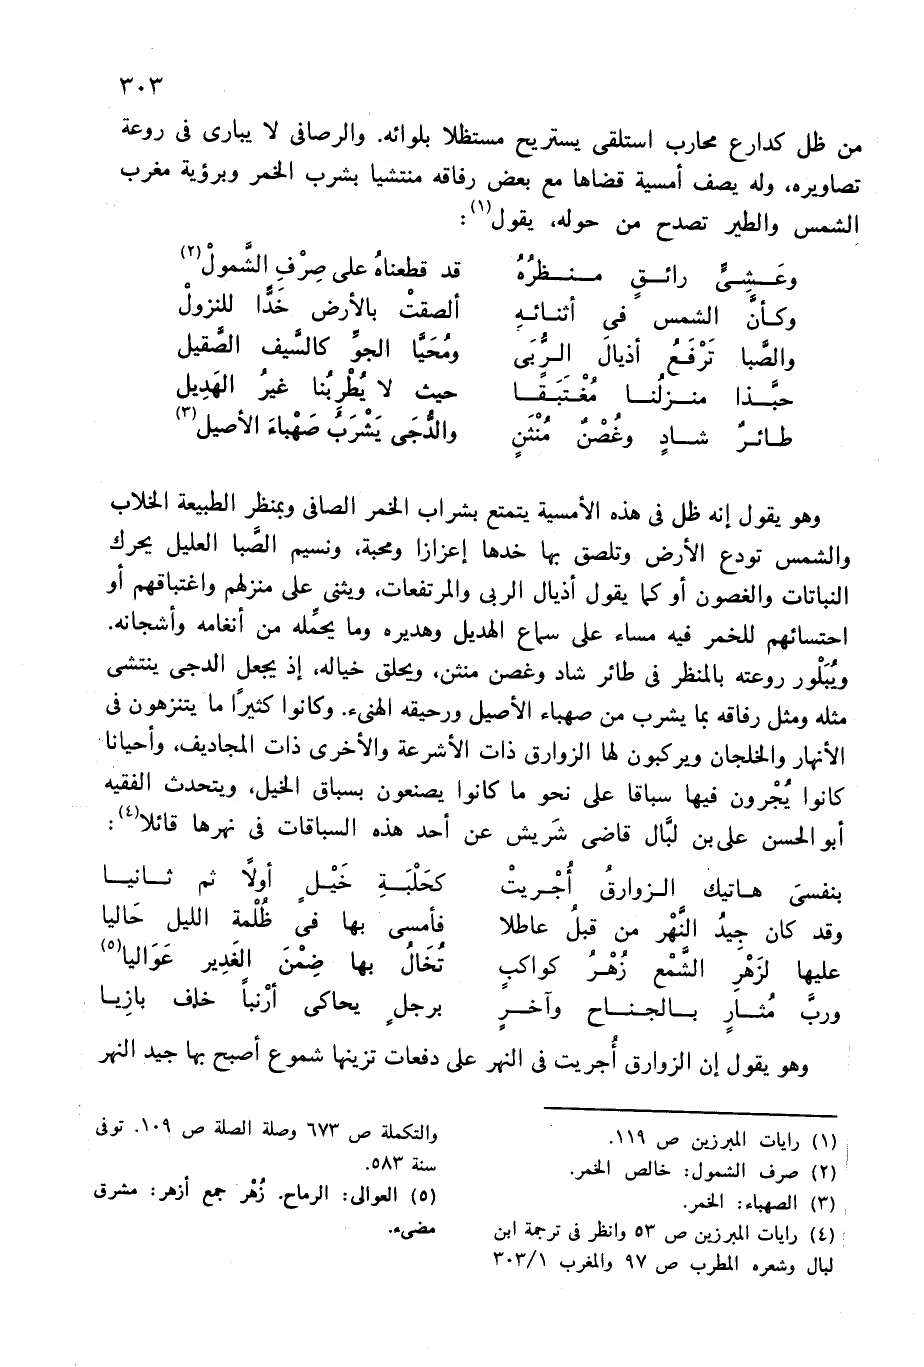 ٣٠٣
من ظل كدارع محارب استلقى يستريح مستظلا بلوائه. والرصافى لا يبارى فى روعة
تصاويره، وله يصف أمسية قضاها مع بعض رفاقه منتشيا بشرب الخمر وبرؤية مغرب
الشمس والطير تصدح من حوله، يقول(١):
وعَـشِـىٍّ رائـقٍ مـنـظرُهُ قد قطعناهُ على صِرْفِ الشَّمولْ(٢)
وكـأنَّ الشمس فى أثنـائـهِ ألصقتْ بالأرض خَدًّا للنزولْ
والصَّبا تَرْفَعُ أذيالَ الـرُّبَى ومُحَيَّا الجوِّ كالسَّيف الصَّقيل
حبَّـذا منـزلُنـا مُغْتَبَـقـا حيث لا يُطْرِبُنا غيرُ الهَديل
طـائـرٌ شـادٍ وغُصْنٌ مُنْثَنٍ والدُّجَى يَشْرَبُ صَهْباءَ الأصيل(٣)
وهو يقول إنه ظل فى هذه الأمسية يتمتع بشراب الخمر الصافى وبمنظر الطبيعة الخلاب
والشمس تودع الأرض وتلصق بها خدها إعزازا ومحبة، ونسيم الصَّبا العليل يحرك
النباتات والغصون أو كما يقول أذيال الربى والمرتفعات، ويثنى على منزلهم واغتباقهم أو
احتسائهم للخمر فيه مساء على سماع الهديل وهديره وما يحمِّله من أنغامه وأشجانه.
ويُبَلْور روعته بالمنظر فى طائر شاد وغصن منثن، ويحلق خياله، إذ يجعل الدجى ينتشى
مثله ومثل رفاقه بما يشرب من صهباء الأصيل ورحيقه الهنىء. وكانوا كثيرًا ما يتنزهون فى
الأنهار والخلجان ويركبون لها الزوارق ذات الأشرعة والأخرى ذات المجاديف، وأحيانا
كانوا يُجْرون فيها سباقا على نحو ما كانوا يصنعون بسباق الخيل، ويتحدث الفقيه
أبو الحسن على بن لبَّال قاضى شَريش عن أحد هذه السباقات فى نهرها قائلا(٤):
بنفسىَ هـاتيك الـزوارقُ أُجْريتْ كحَلْبَـةِ خَيْـلٍ أولًا ثم ثـانيـا
وقد كان جِيدُ النَّهْر من قبلُ عاطلا فأمسى بها فى ظُلْمة الليل حَاليا
عليها لزَهْرِ الشَّمْع زُهْـرُ كواكبٍ تُخَالُ بها ضِمْنَ الغَدير عَوَاليا(٥)
وربَّ مُثـارٍ بـالجنـاح وآخـرٍ برجلٍ يحاكى أرْنباً خاف بازيا
وهو يقول إن الزوارق أُجريت فى النهر على دفعات تزينها شموع أصبح بها جيد النهر
(١) رايات المبرزين ص ١١٩.
(٢) صرف الشمول: خالص الخمر.
(٣) الصهباء: الخمر.
(٤) رايات المبرزين ص ٥٣ وانظر فى ترجمة ابن
لبال وشعره المطرب ص ٩٧ والمغرب ٣٠٣/١
والتكملة ص ٦٧٣ وصلة الصلة ص ١٠٩. توفى
سنة ٥٨٣.
(٥) العوالى: الرماح. زُهْر جمع أزهر: مشرق
مضىء.